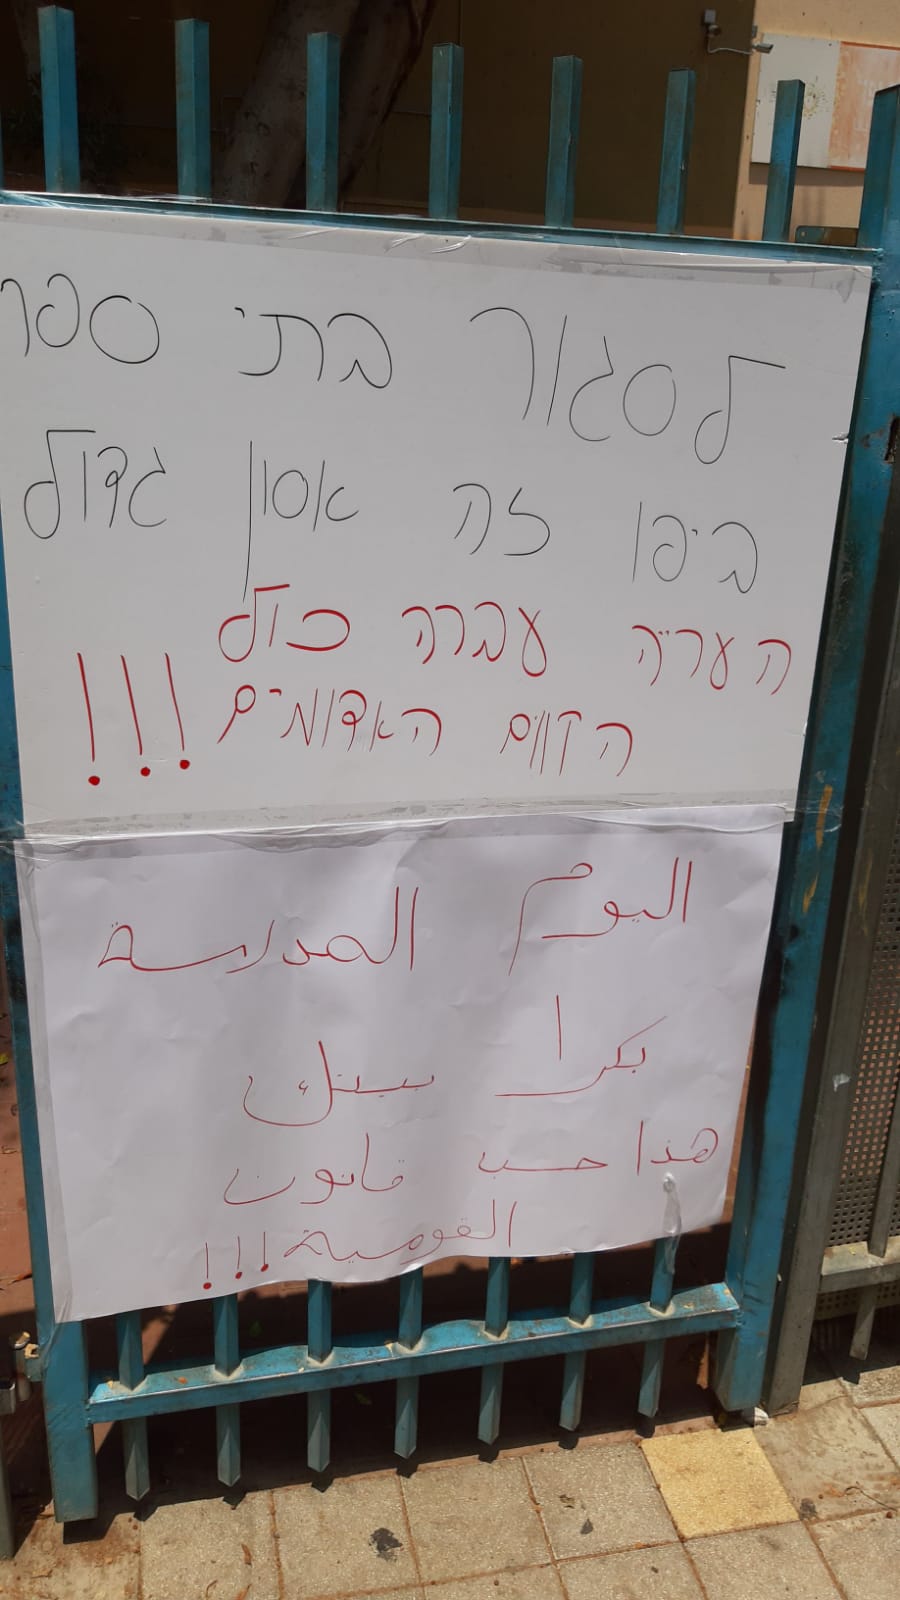 לסגור בתי ספר
ביפו זה אסון גדול
העריה עברה כול
הקווים האדומים !!!
اليوم المدرسة
بكرا بيتك
هذا حسب قانون
القومية !!!